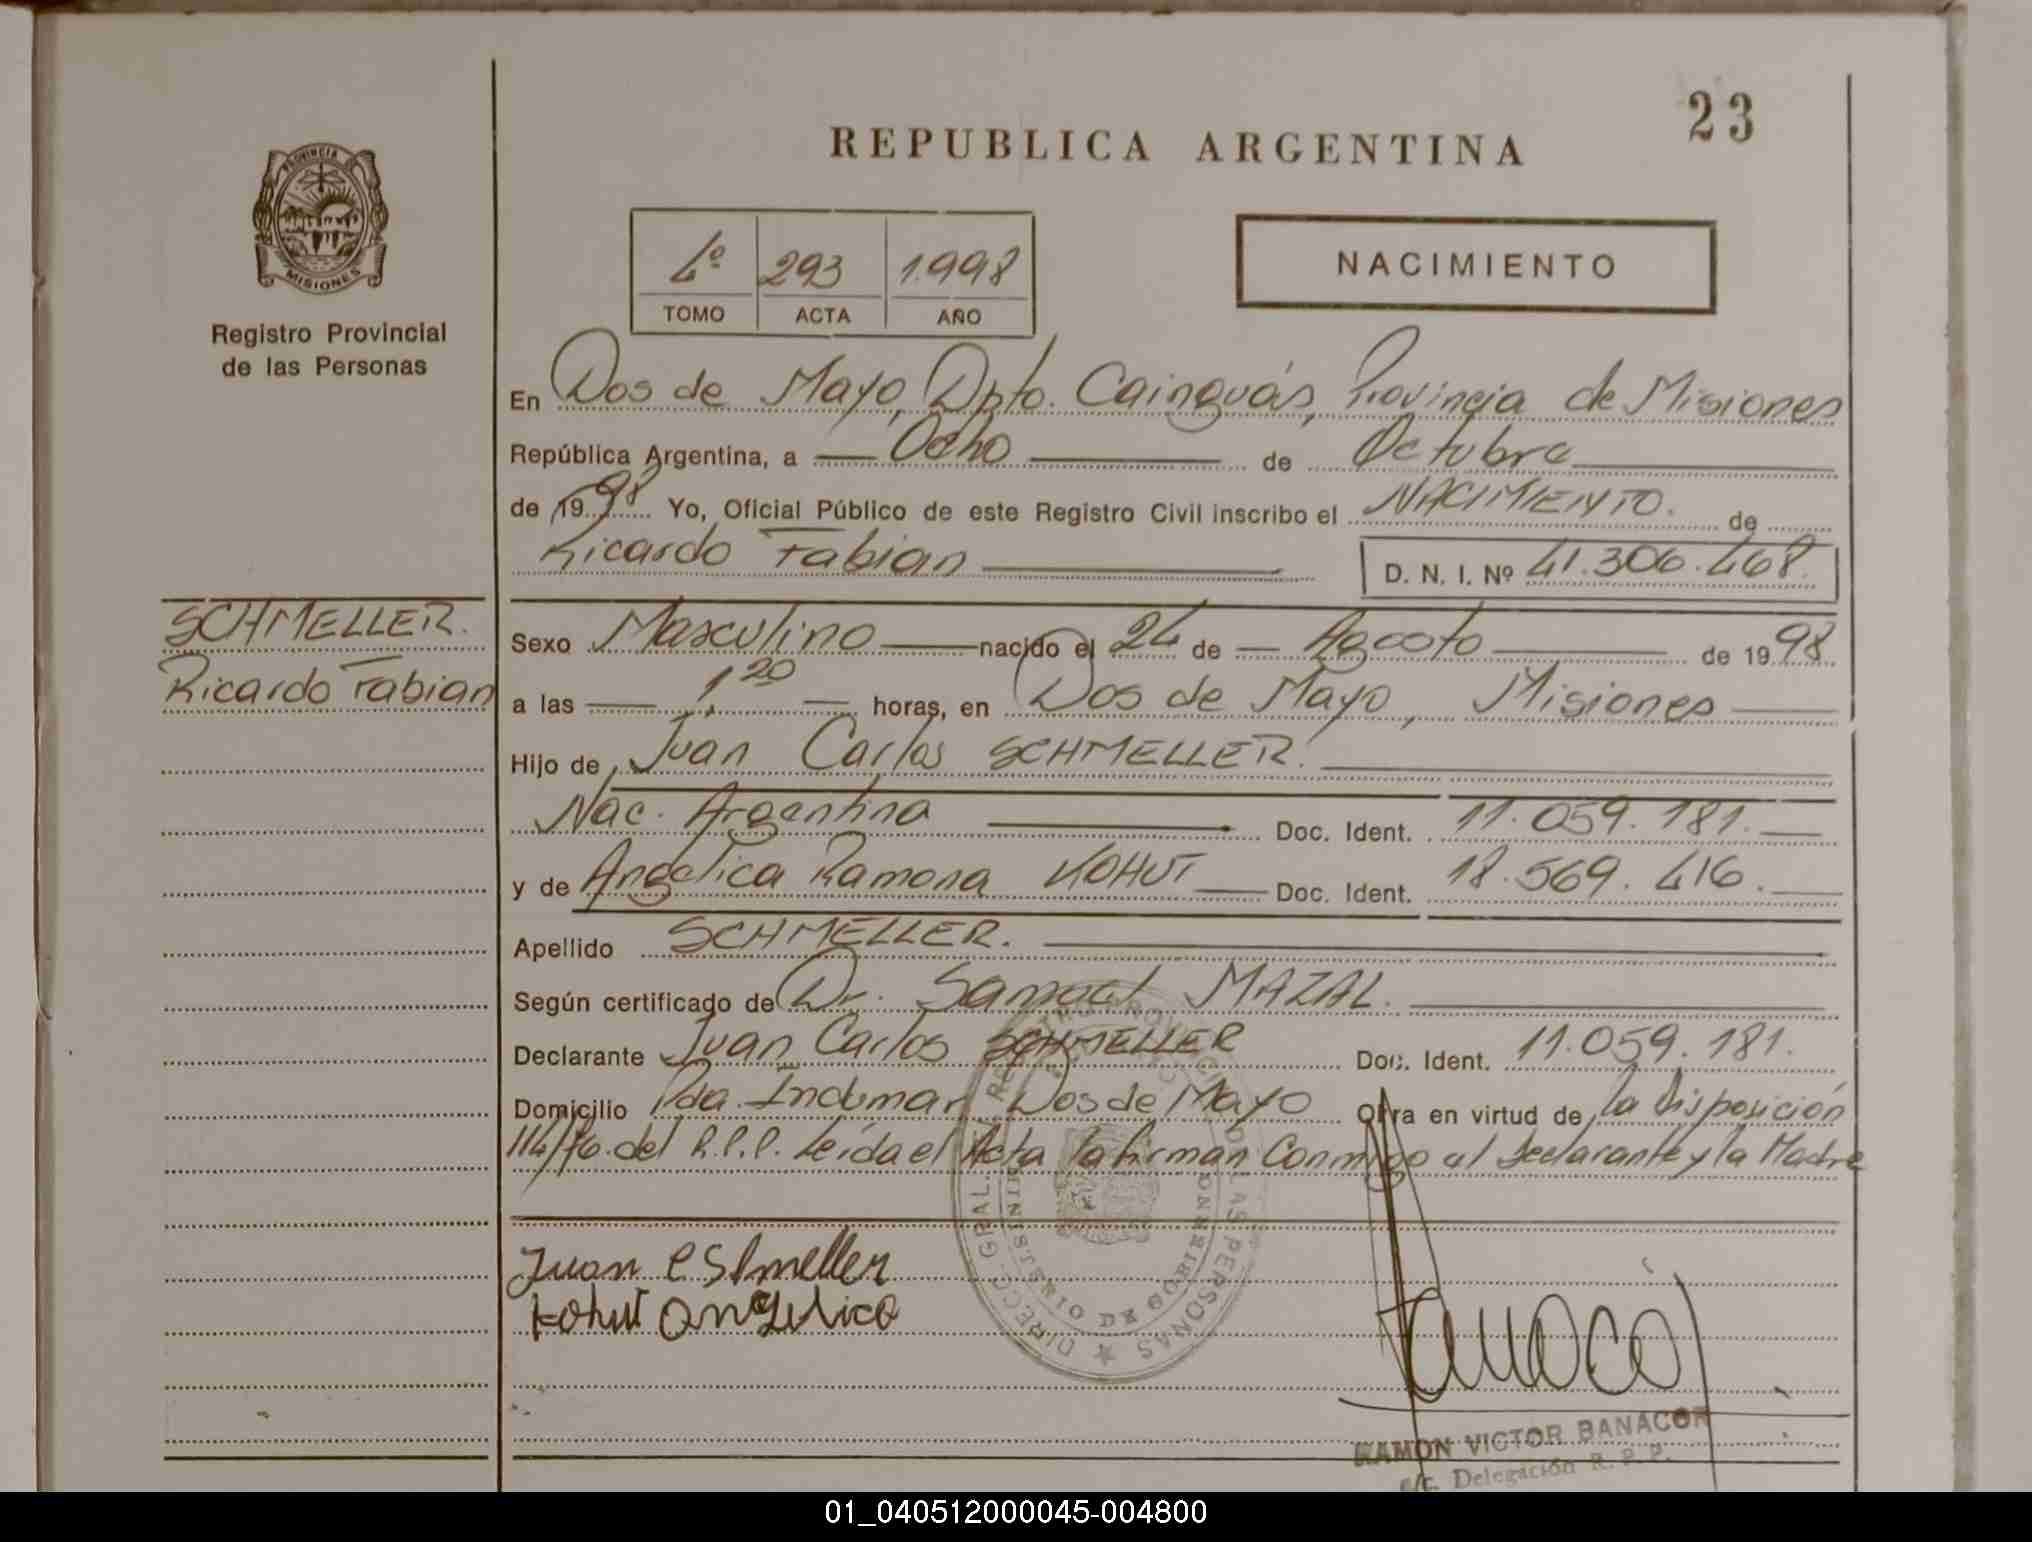 23
REPUBLICA ARGENTINA
PROVINCIA DE
MISIONES
Registro Provincial
de las Personas
4º 293 1.998
TOMO ACTA AÑO
NACIMIENTO
En Dos de Mayo, Dpto. Cainguás, Provincia de Misiones
República Argentina, a Ocho de Octubre
de 1998 Yo, Oficial Público de este Registro Civil inscribo el NACIMIENTO. de
Ricardo Fabian D. N. I. Nº 41.306.468.
SCHMELLER.
Ricardo Fabian
Sexo Masculino nacido el 24 de Agosto de 1998.
a las 1,20 horas, en Dos de Mayo, Misiones
Hijo de Juan Carlos SCHMELLER.
Nac. Argentina Doc. Ident. 11.059.181.
y de Angelica Ramona KOHUT Doc. Ident. 18.569.416.
Apellido SCHMELLER.
Según certificado de Dr. Samuel MAZAL.
Declarante Juan Carlos SCHMELLER Doc. Ident. 11.059.181.
Domicilio Pda. Indumar Dos de Mayo Obra en virtud de la Disposición
114/76. del R.P.P. Leída el Acta la firman Conmigo el Declarante y la Madre
Juan C Shmeller
Kohut Angelica
DIRECC. GRAL. DE LAS PERSONAS
MINISTERIO DE GOBIERNO
RAMON VICTOR BANACOR
e/c. Delegación R. P. P.
01_040512000045-004800